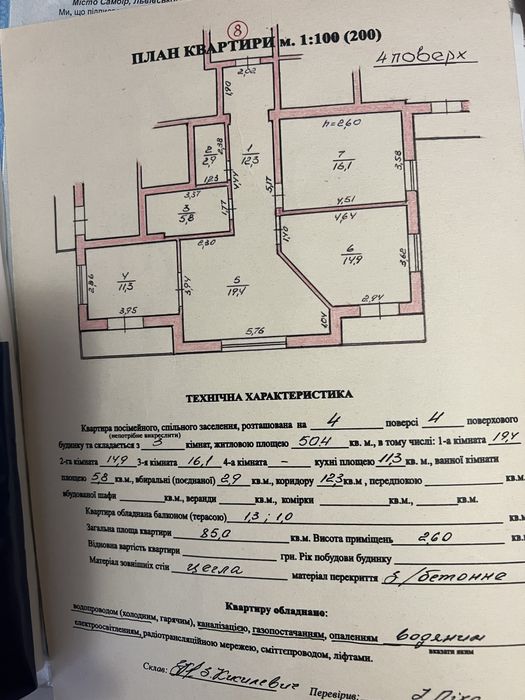 Місто Самбір, Львівськ
Ми, що підпис
8
ПЛАН КВАРТИРИ м. 1:100 (200)
4 поверх
2,02
1,90
h=2,60
2 2,9
2,38
1 12,3
7 16,1
3,58
1,23
4,44
3,37
5,17
3 5,8
1,77
4,51
4,64
2,30
1,40
6 14,9
3,62
4 11,3
2,86
3,94
5 19,4
2,94
3,95
1,04
5,76
ТЕХНІЧНА ХАРАКТЕРИСТИКА
Квартира посімейного, спільного заселення, розташована на 4 поверсі 4 поверхового
(непотрібне викреслити)
будинку та складається з 3 кімнат, житловою площею 50,4 кв. м., в тому числі: 1-а кімната 19,4
2-га кімната 14,9 3-я кімната 16,1 4-а кімната - кухні площею 11,3 кв. м., ванної кімнати
площею 5,8 кв.м., вбиральні (поєднаної) 2,9 кв.м., коридору 12,3 кв.м , передпокою кв.м
вбудованої шафи кв.м., веранди кв.м., комірки кв.м., кв.м.
Квартира обладнана балконом (терасою) 1,3 ; 1,0 кв.
Загальна площа квартири 85,0 кв.м. Висота приміщень 2,60 кв.
Відновна вартість квартири грн. Рік побудови будинку
Матеріал зовнішніх стін цегла матеріал перекриття з/бетонне
Квартиру обладнано:
водопроводом (холодним, гарячим), каналізацією, газопостачанням, опаленням водяним
вказати яким
електроосвітленням, радіотрансляційною мережею, сміттєпроводом, ліфтами.
Склав: Кисилевич
Перевірив: